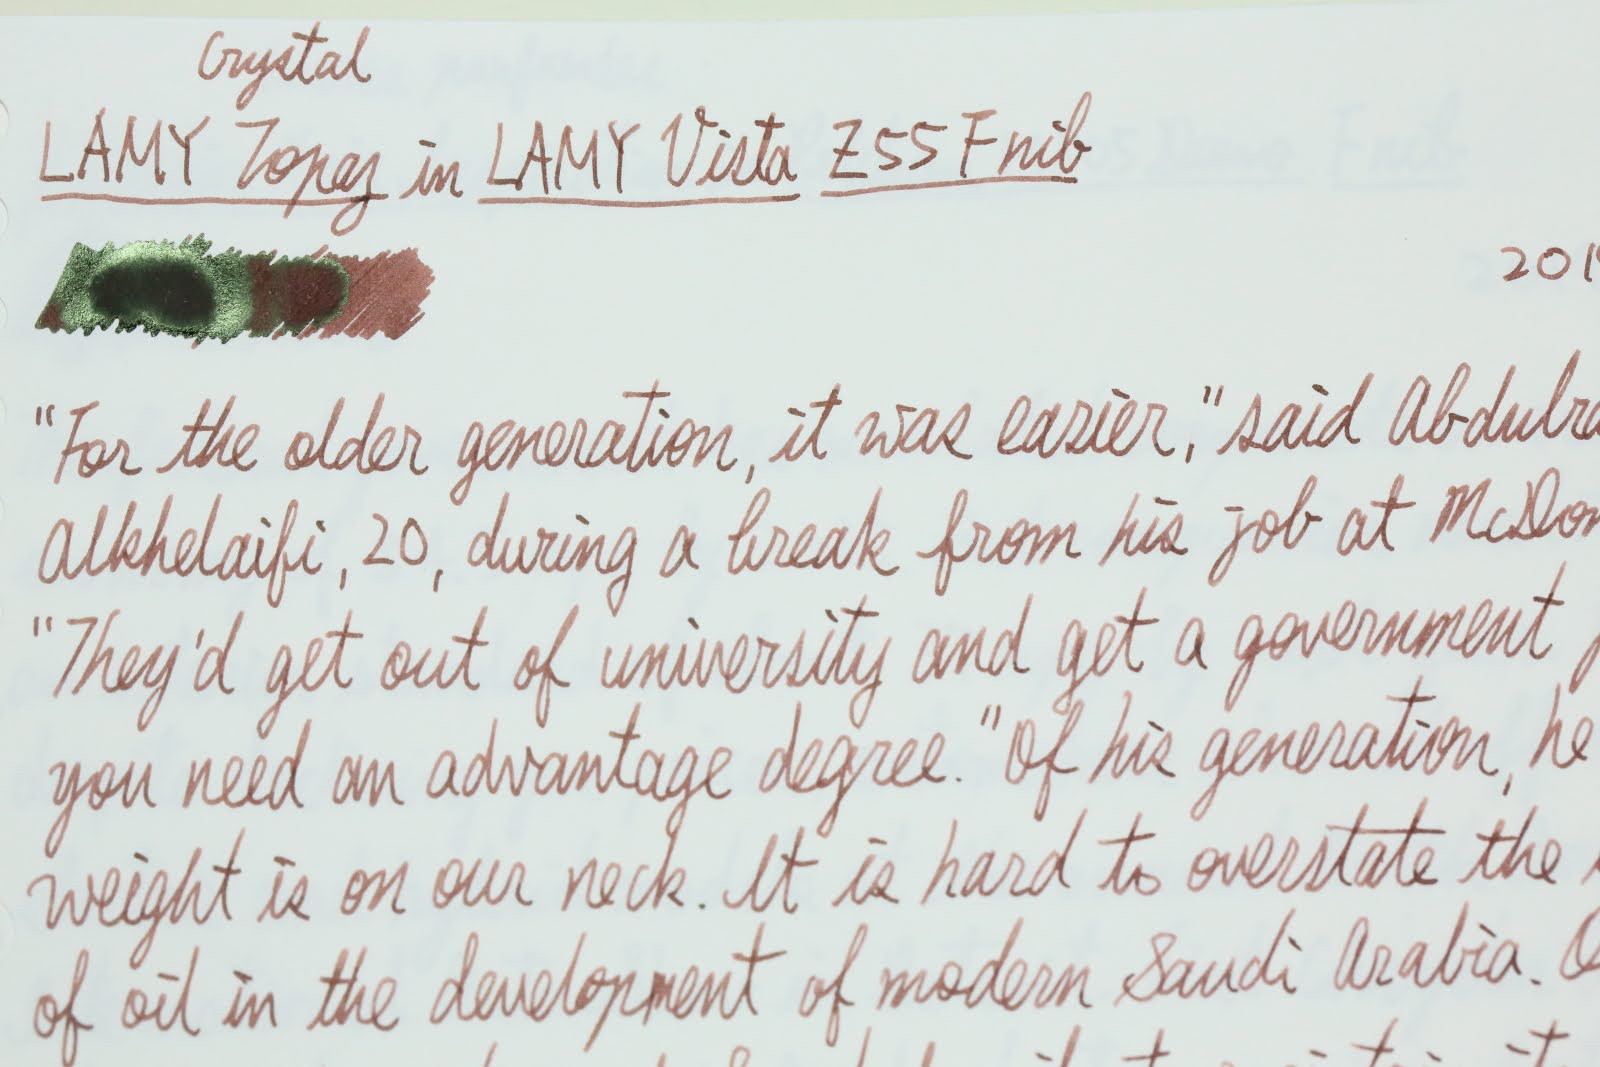 Crystal
LAMY Topaz in LAMY Vista Z55 F nib
"For the older generation, it was easier," said Abdulra
Alkhelaifi, 20, during a break from his job at McDon
"They'd get out of university and get a government
you need an advantage degree." Of his generation, he
weight is on our neck. It is hard to overstate the
of oil in the development of modern Saudi Arabia.